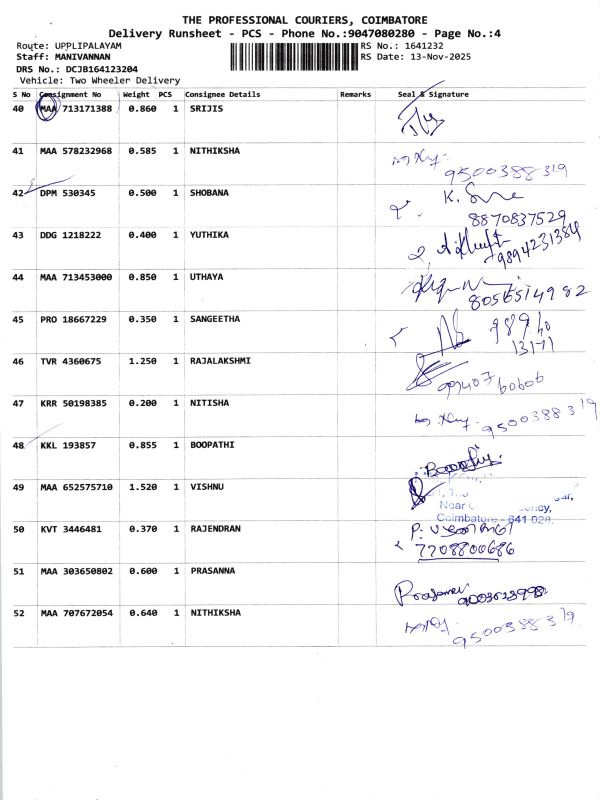 THE PROFESSIONAL COURIERS, COIMBATORE
Delivery Runsheet - PCS - Phone No.:9047080280 - Page No.:4
Route: UPPLIPALAYAM RS No.: 1641232
Staff: MANIVANNAN RS Date: 13-Nov-2025
DRS No.: DCJB164123204
Vehicle: Two Wheeler Delivery
S No Consignment No Weight PCS Consignee Details Remarks Seal & Signature
40 MAA 713171388 0.860 1 SRIJIS
41 MAA 578232968 0.585 1 NITHIKSHA
9500388319
42 DPM 530345 0.500 1 SHOBANA
8870837529
43 DDG 1218222 0.400 1 YUTHIKA
9894231384
44 MAA 713453000 0.850 1 UTHAYA
8056514982
45 PRO 18667229 0.350 1 SANGEETHA
98940
13171
46 TVR 4360675 1.250 1 RAJALAKSHMI
47 KRR 50198385 0.200 1 NITISHA
9500388319
48 KKL 193857 0.855 1 BOOPATHI
49 MAA 652575710 1.520 1 VISHNU
Near
Coimbatore - 641 028.
50 KVT 3446481 0.370 1 RAJENDRAN
7708800686
51 MAA 303650802 0.600 1 PRASANNA
52 MAA 707672054 0.640 1 NITHIKSHA
9500388319